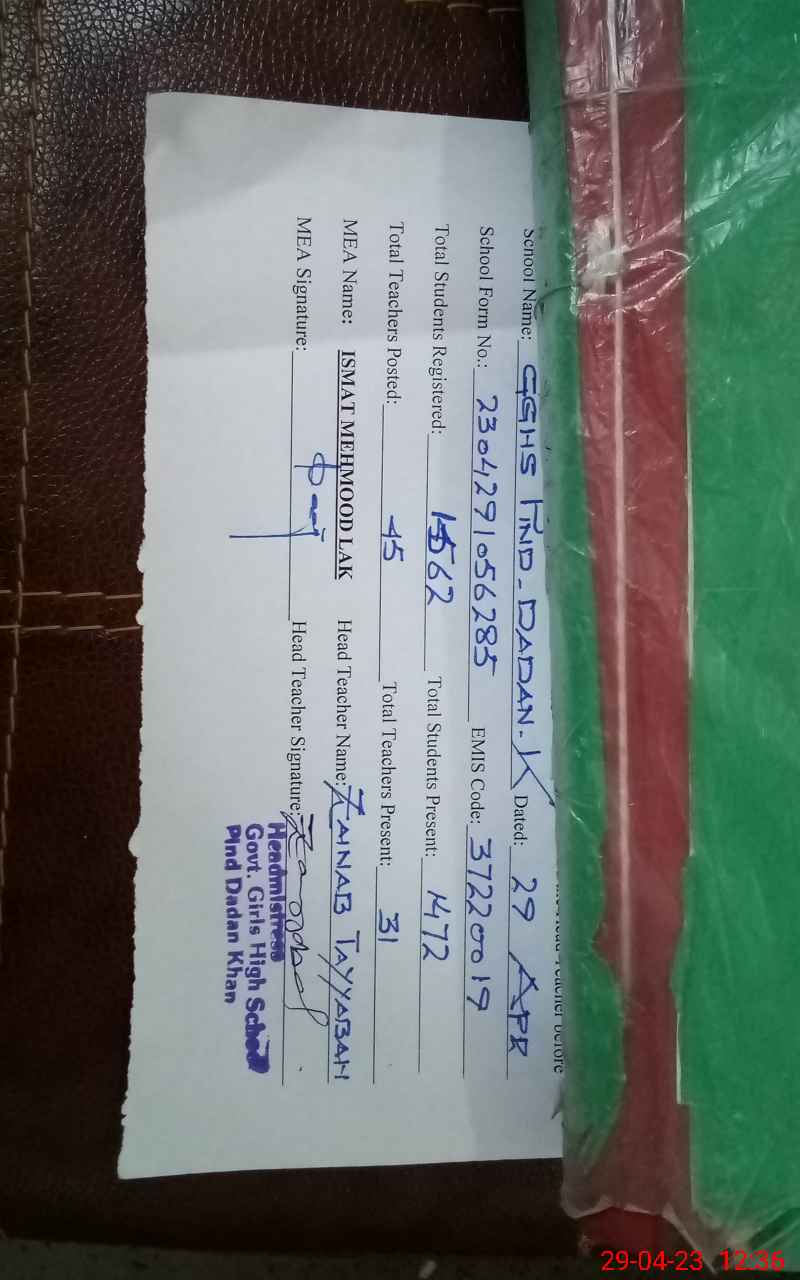 Head Teacher before
School Name: GGHS PIND-DADAN.K Dated: 29 APR
School Form No.: 2304291056285 EMIS Code: 37220019
Total Students Registered: 1562 Total Students Present: 1472
Total Teachers Posted: 45 Total Teachers Present: 31
MEA Name: ISMAT MEHMOOD LAK Head Teacher Name: ZAINAB TAYYABAH
MEA Signature: Head Teacher Signature:
Headmistress
Govt. Girls High School
Pind Dadan Khan
29-04-23 12:36